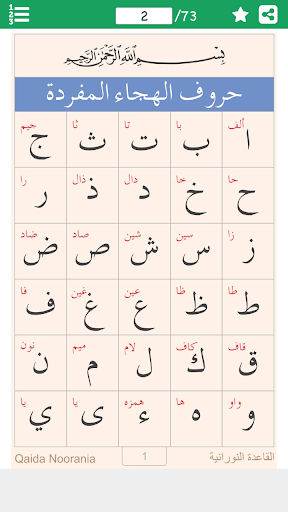 2 /73
بِسْمِ اللَّهِ الرَّحْمَٰنِ الرَّحِيمِ
حروف الهجاء المفردة
ألف با تا ثا جيم
ا ب ت ث ج
حا خا دال ذال را
ح خ د ذ ر
زا سين شين صاد ضاد
ز س ش ص ض
طا ظا عين غين فا
ط ظ ع غ ف
قاف كاف لام ميم نون
ق ك ل م ن
واو ها همزه يا يا
و ه ء ى ي
Qaida Noorania 1 القاعدة النورانية